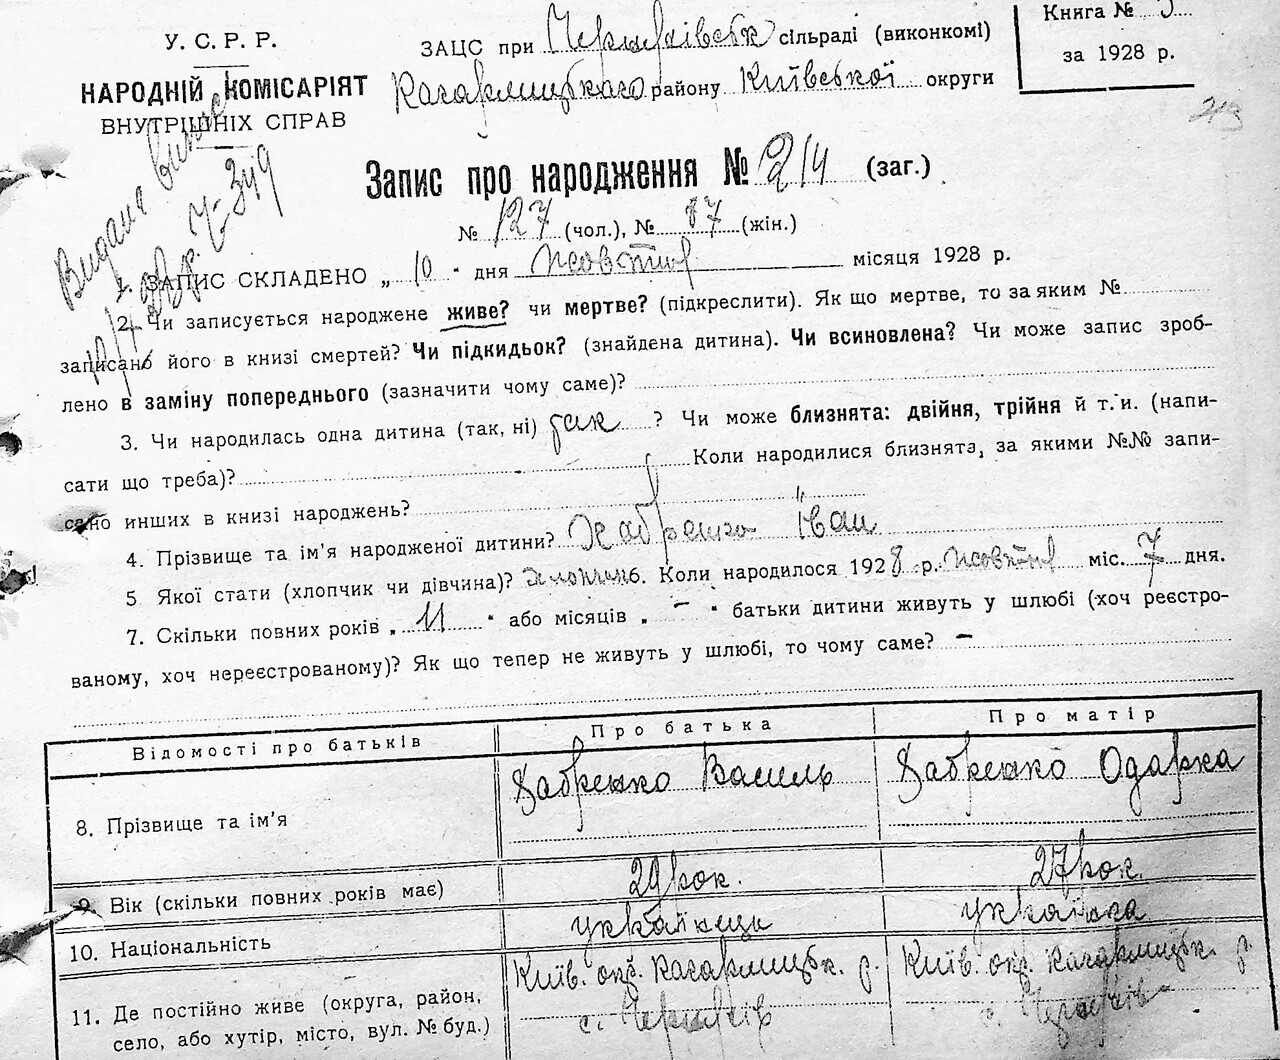 У. С. Р. Р.
НАРОДНІЙ КОМІСАРІЯТ
ВНУТРІШНІХ СПРАВ
ЗАЦС при сільраді (виконкомі)
Кагарлицького району Київської округи
Книга №
за 1928 р.
Видана
Запис про народження № 214 (заг.)
№ 127 (чол.), № 87 (жін.)
1. ЗАПИС СКЛАДЕНО „ 10 " дня жовтня місяця 1928 р.
2. Чи записується народжене живе? чи мертве? (підкреслити). Як що мертве, то за яким №
записано його в книзі смертей? Чи підкидьок? (знайдена дитина). Чи всиновлена? Чи може запис зроб-
лено в заміну попереднього (зазначити чому саме)?
3. Чи народилась одна дитина (так, ні) так ? Чи може близнята: двійня, трійня й т. и. (напи-
сати що треба)? Коли народилися близнята, за якими №№ запи-
сано инших в книзі народжень?
4. Прізвище та ім'я народженої дитини? Іван
5 Якої стати (хлопчик чи дівчина)? хлопчик 6. Коли народилось 1928 р. жовтня міс. 7 дня.
7. Скільки повних років „ 11 " або місяців „ - " батьки дитини живуть у шлюбі (хоч реєстро-
ваному, хоч нереєстрованому)? Як що тепер не живуть у шлюбі, то чому саме? -
Відомості про батьків Про батька Про матір
8. Прізвище та ім'я Василь Одарка
9. Вік (скільки повних років має) 29 рок. 27 рок.
10. Національність українець українка
11. Де постійно живе (округа, район, Київ. окр. Кагарлицьк. р. Київ. окр. Кагарлицьк. р.
село, або хутір, місто, вул. № буд.) с. с.